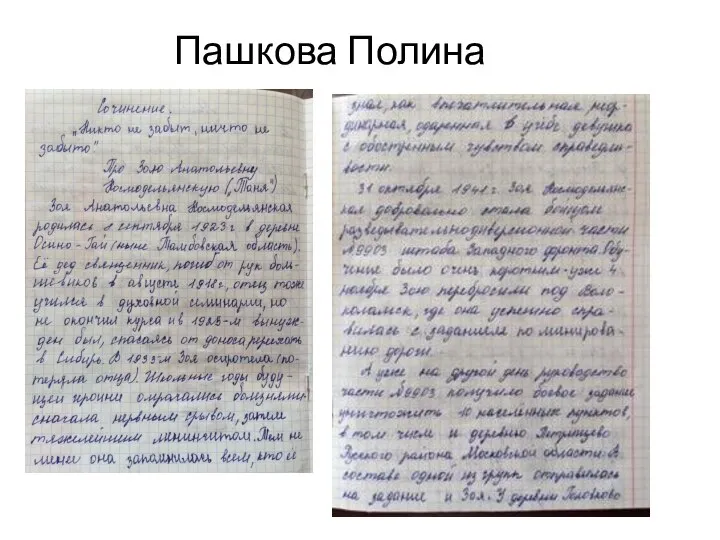 Пашкова Полина
Сочинение.
„Никто не забыт, ничто не
забыто"
Про Зою Анатольевну
Космодемьянскую („Таня")
Зоя Анатольевна Космодемьянская
родилась 8 сентября 1923 г в деревне
Осино-Гай (ныне Тамбовская область).
Её дед священник, погиб от рук боль-
шевиков в августе 1918 г, отец тоже
учился в духовной семинарии, но
не окончил курса и в 1929-м вынуж-
ден был, спасаясь от доноса переехать
в Сибирь. В 1933-м Зоя осиротела (по-
теряла отца). Школьные годы буду-
щей героини омрачались болезнями
сначала нервным срывом, затем
тяжелейшим менингитом. Тем не
менее она запомнилась всем, кто её
знал, как впечатлительная неор-
динарная, одаренная в учёбе девушка
с обостренным чувством справедли-
вости.
31 октября 1941 г. Зоя Космодемьянс-
кая добровольно стала бойцом
разведывательнодиверсионной части
№9903 штаба Западного фронта. Обу-
чение было очень коротким-уже 4
ноября Зою перебросили под Воло-
коламск, где она успешно спра-
вилась с заданием по минирова-
нию дороги.
А уже на другой день руководство
части №9903 получило боевое задание
уничтожить 10 населённых пунктов,
в том числе и деревню Петрищево
Рузского района Московской области. В
составе одной из групп отправилась
на задание и Зоя. У деревни Головково